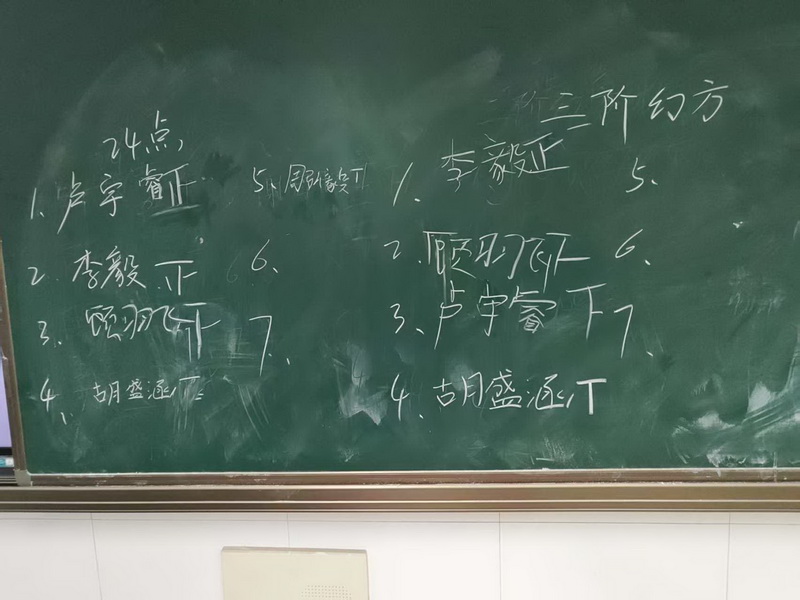 24点
三阶幻方
1、卢宇睿正
5、周
1、李毅正
5、
2 李毅正
6、
2、顾羽飞
6、
3、顾羽飞
7、
3、卢宇睿下
7、
4、胡盛涵
4、胡盛涵